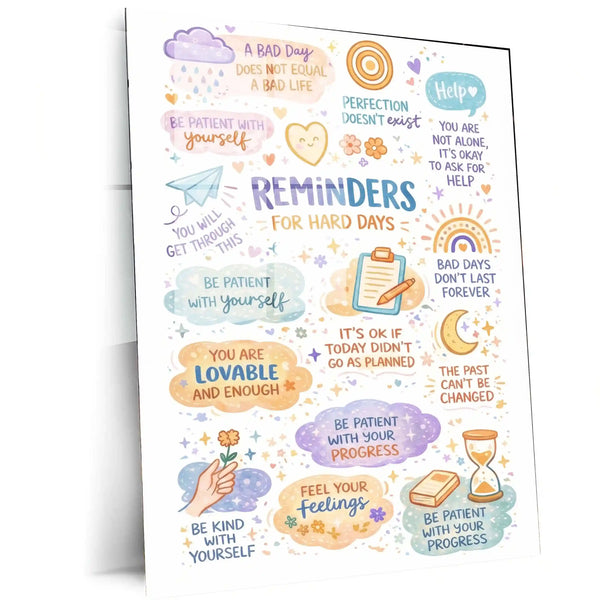 A BAD Day
DOES NOT EQUAL
A BAD LIFE
PERFECTION
DOESN'T exist
Help
BE PATIENT WITH
yourself
YOU ARE
NOT ALONE,
IT'S OKAY
TO ASK FOR
HELP
REMINDERS
FOR HARD DAYS
YOU WILL
GET THROUGH
THIS
BE PATIENT
WITH yourself
BAD DAYS
DON'T LAST
FOREVER
IT'S OK IF
TODAY DIDN'T
GO AS PLANNED
YOU ARE
LOVABLE
AND ENOUGH
THE PAST
CAN'T BE
CHANGED
BE PATIENT
WITH YOUR
PROGRESS
FEEL YOUR
feelings
BE KIND
WITH
YOURSELF
BE PATIENT
WITH YOUR
PROGRESS